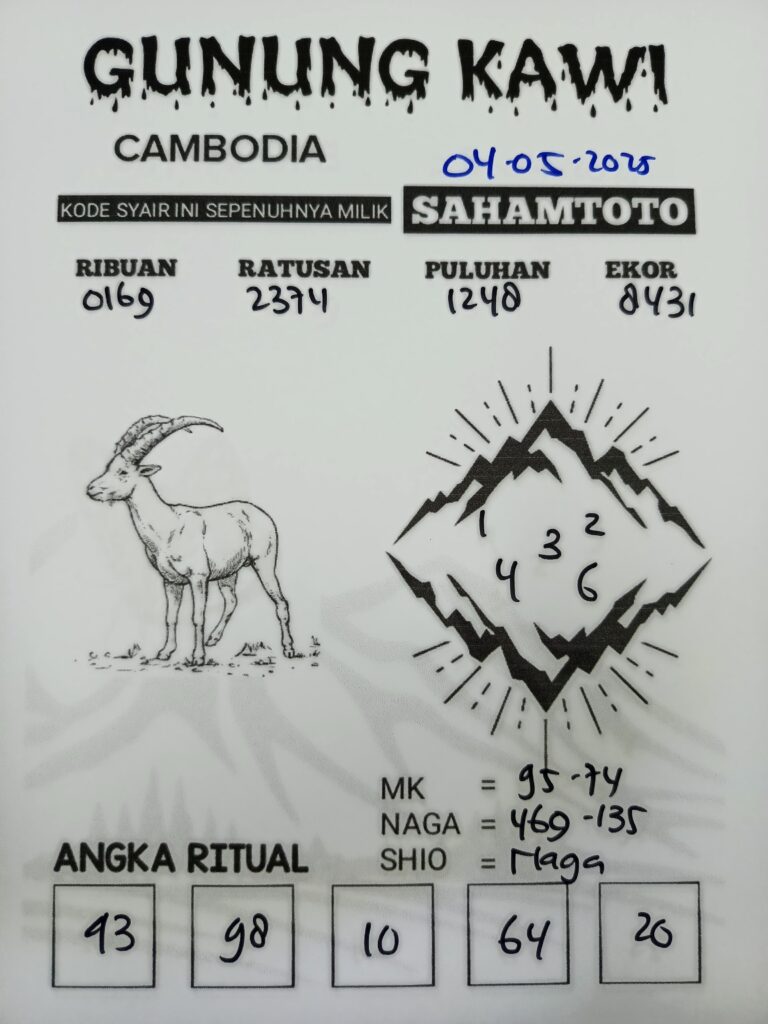 GUNUNG KAWI
CAMBODIA 04-05-2025
KODE SYAIR INI SEPENUHNYA MILIK SAHAMTOTO
RIBUAN RATUSAN PULUHAN EKOR
0169 2374 1248 8431
1 2
3
4 6
MK = 95-74
NAGA = 469-135
SHIO = Naga
ANGKA RITUAL
93 98 10 64 20